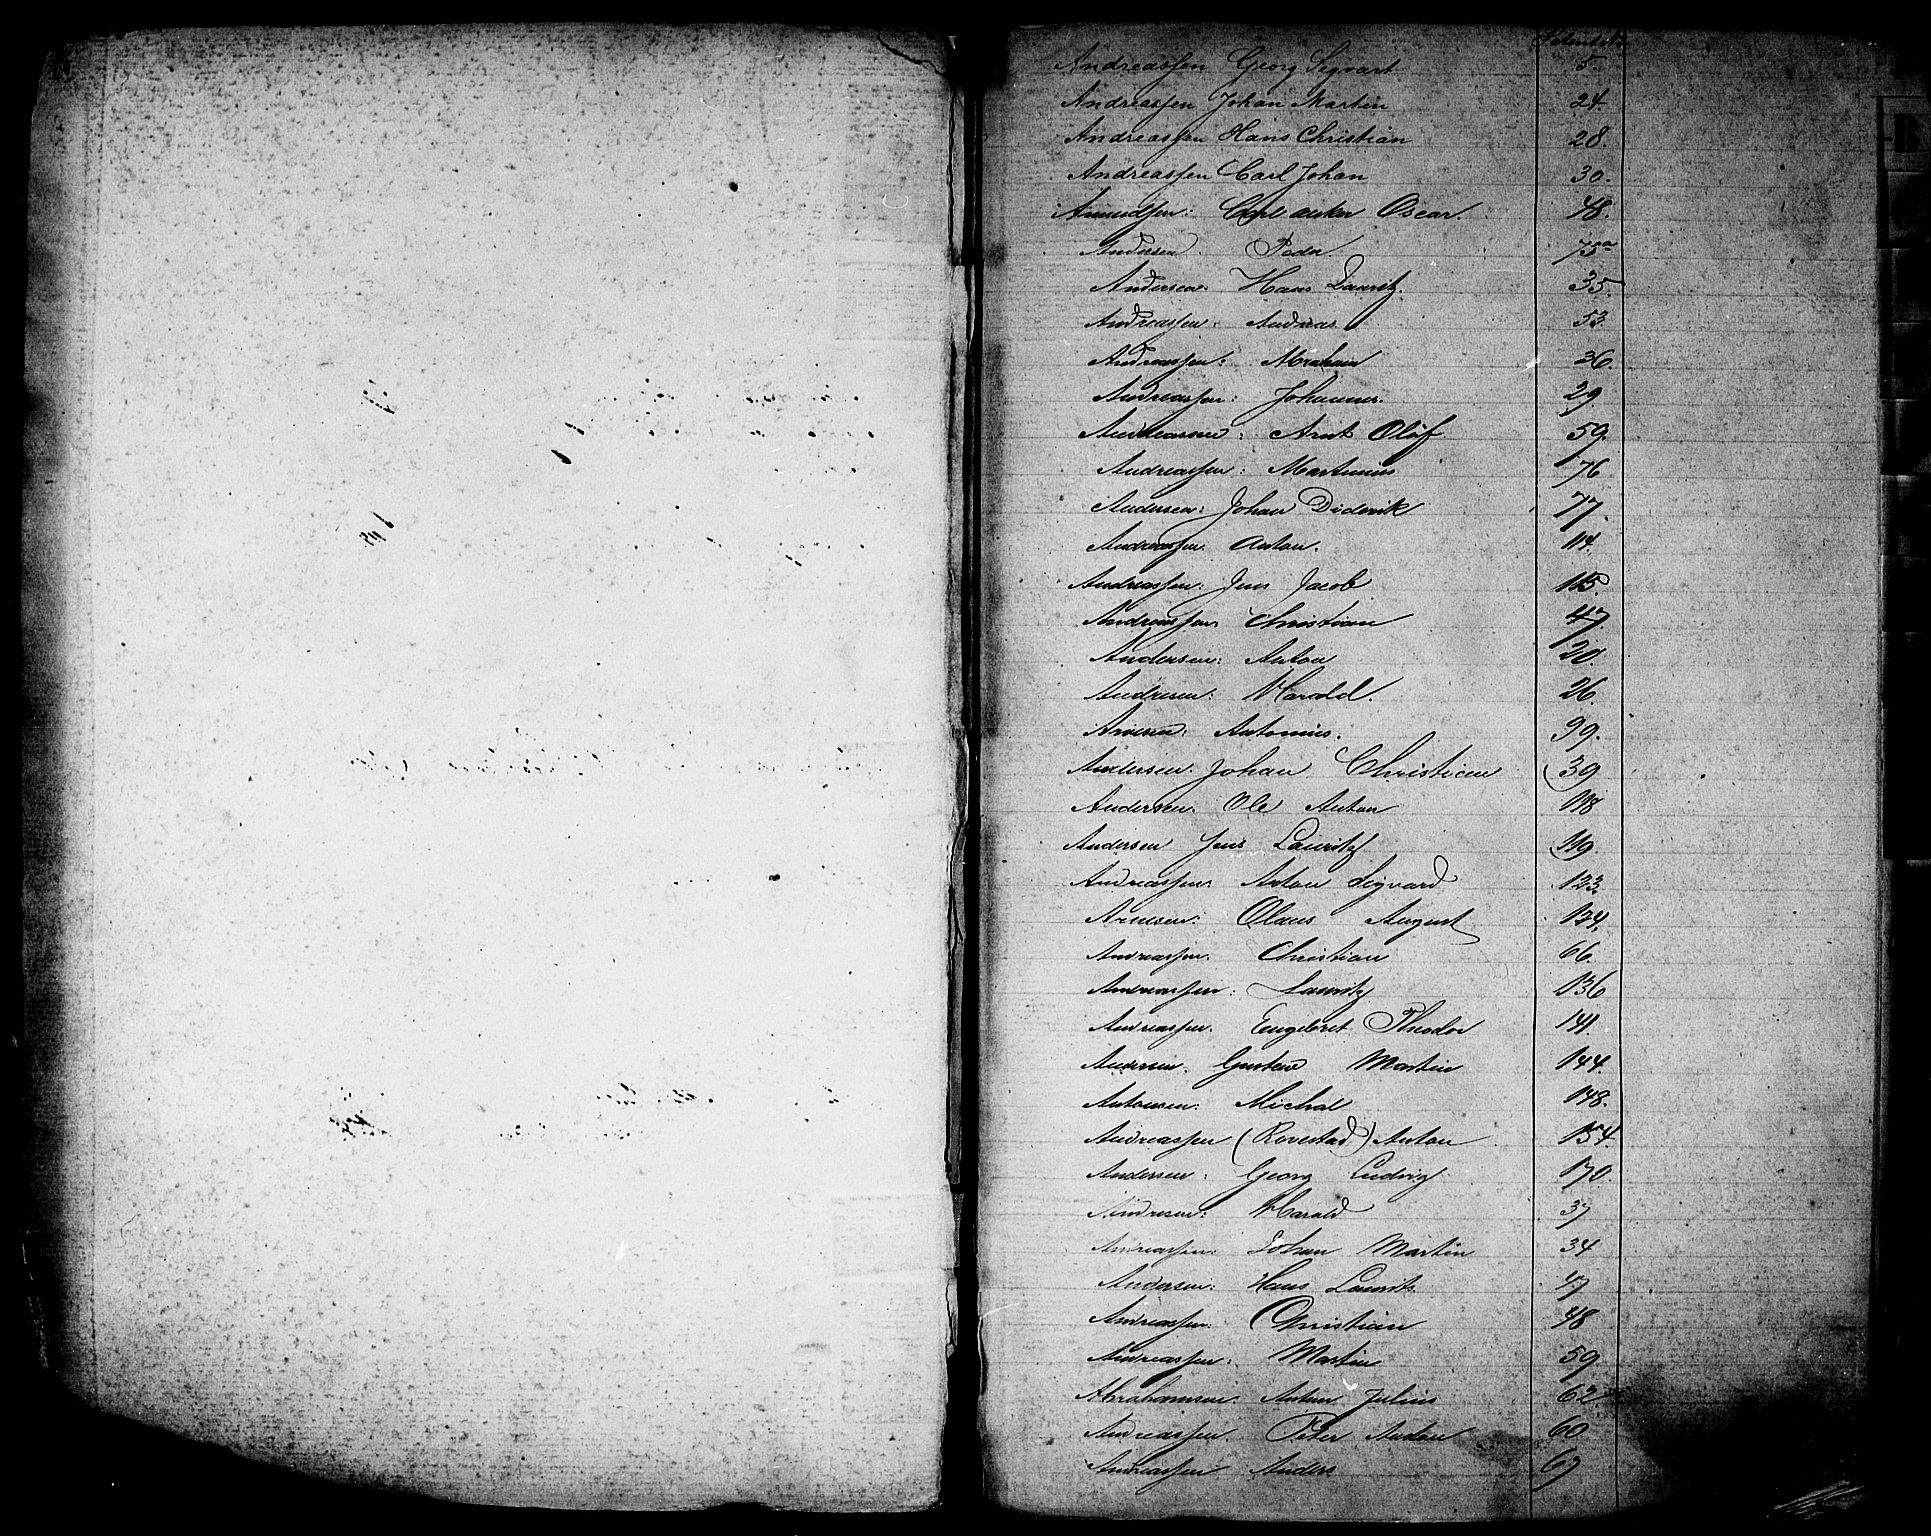 Andreassen Georg Sigvart 5.
Andreassen Johan Martin 24.
Andreassen Hans Christian 28.
Andreassen Carl Johan 30.
Amundsen: Carl Oscar. 48.
Andersen. Peder. 75
Andersen: Hans Lauritz. 35.
Andreassen: Andreas. 53.
Andreassen: Abraham 36.
Andreassen: Johannes. 29.
Andreassen: Arnt Olaf 59.
Andreassen: Martinius 76
Andersen: Johan Diderik 77.
Andreassen. Anton. 114.
Andreassen: Jens Jacob 115.
Andreassen Christian 47.
Andersen: Anton 20.
Andresen: Harald. 26.
Arnesen: Antonius. 99.
Andersen. Johan Christian 39
Andersen. Ole Anton 118
Andersen Jens Lauritz 119.
Andreassen: Anton Sigvard 123.
Arnesen: Olaus August 124.
Andreassen. Christian 66.
Andreassen: Lauritz 136
Andreassen. Engebret Theodor 141.
Andersen. Gustav Martin 144.
Antonsen: Michal 148.
Andreassen (Rovestad) Anton 154.
Andersen: Georg Ludvig 170.
Andresen: Harald 37
Andreassen: Johan Martin 34
Andersen: Hans Laurits. 47
Andreassen: Christian 48
Andreassen: Martin 59
Abrahamsen. Anton Julius 62
Andreassen. Peter Anton 60
Andreassen Anders 67